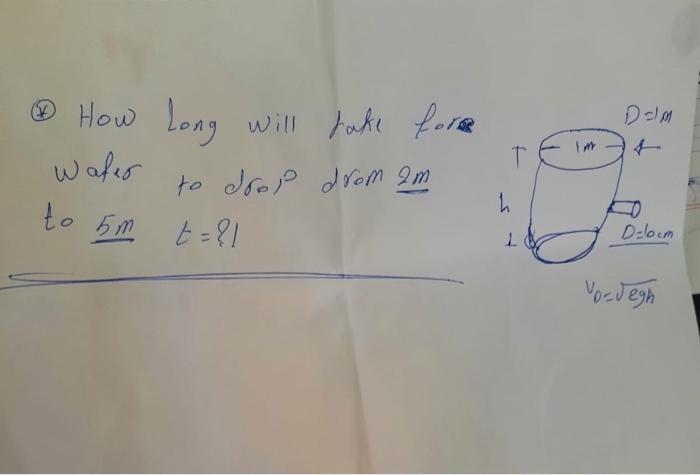 ⊛ How Long will take fore
Water to drop drom 2m
to 5m t=?!
D=1m
1m
h
D=10cm
V0=√2gh